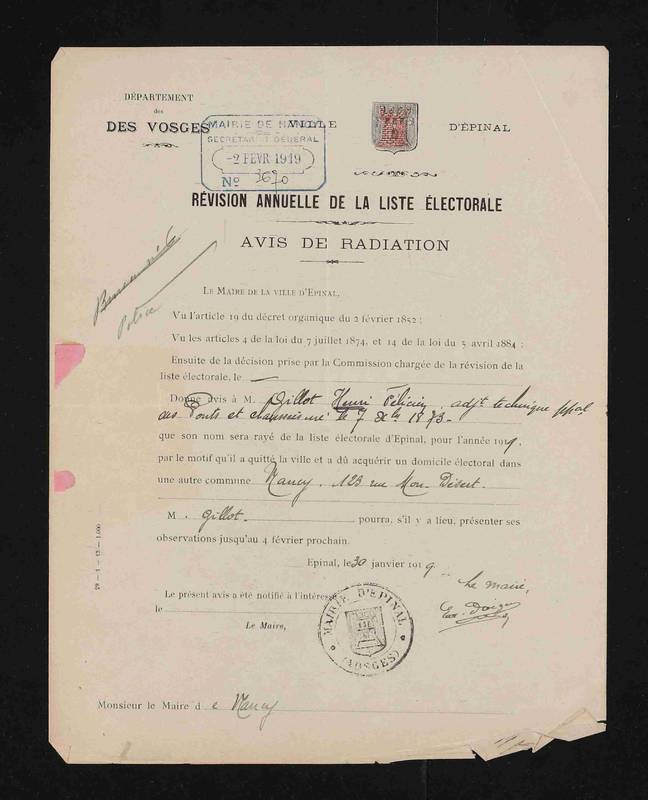 DÉPARTEMENT
des
DES VOSGES
MAIRIE DE NANCY
SECRÉTARIAT GÉNÉRAL
-2 FEVR 1919
No 3670
VILLE D'ÉPINAL
RÉVISION ANNUELLE DE LA LISTE ÉLECTORALE
AVIS DE RADIATION
LE MAIRE DE LA VILLE D'EPINAL,
Vu l'article 19 du décret organique du 2 février 1852 ;
Vu les articles 4 de la loi du 7 juillet 1874, et 14 de la loi du 5 avril 1884 ;
Ensuite de la décision prise par la Commission chargée de la révision de la
liste électorale, le —
Donne avis à M. Gillot Henri Félicien, adjt technique ppal
des Ponts et chaussées né le 7 Xbre 1873 -
que son nom sera rayé de la liste électorale d'Epinal, pour l'année 1919,
par le motif qu'il a quitté la ville et a dû acquérir un domicile électoral dans
une autre commune Nancy, 123 rue Mon-Désert.
M. Gillot pourra, s'il y a lieu, présenter ses
observations jusqu'au 4 février prochain.
Epinal, le 30 janvier 1919
Le maire,
Le présent avis a été notifié à l'intéressé
le
Le Maire,
MAIRIE D'EPINAL
(VOSGES)
Monsieur le Maire de Nancy